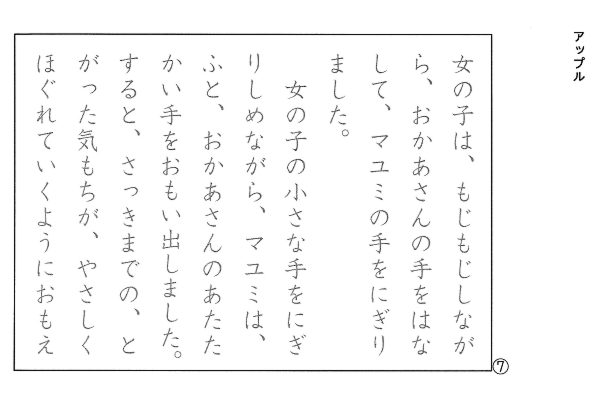 アップル
女の子は、もじもじしなが
ら、おかあさんの手をはな
して、マユミの手をにぎり
ました。
女の子の小さな手をにぎ
りしめながら、マユミは、
ふと、おかあさんのあたた
かい手をおもい出しました。
すると、さっきまでの、と
がった気もちが、やさしく
ほぐれていくようにおもえ
⑦